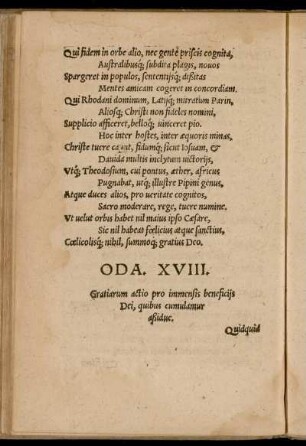 Qui fidem in orbe alio, nec gente priscis cognita,
Australibusq; subdita plagis, nouos
Spargeret in populos, sententijsq; dißitas
Mentes amicam cogeret in concordiam.
Qui Rhodani dominum, Latijq; muratum Parin,
Aliosq; Christi non fideles nomini,
Supplicio afficeret, belloq; uinceret pio.
Hoc inter hostes, inter æquoris minas,
Christe tuere caput, fidumq; sicut Iosuam, &
Dauida multis inclytum uictorijs,
Vtq; Theodosium, cui pontus, æther, africus
Pugnabat, utq; illustre Pipini genus,
Atque duces alios, pro ueritate cognitos,
Sacro moderare, rege, tuere numine.
Vt uelut orbis habet nil maius ipso Cæsare,
Sic nil habeat fœlicius atque sanctius,
Cœlicolisq; nihil, summoq; gratius Deo.
ODA. XVIII.
Gratiarum actio pro immensis beneficijs
Dei, quibus cumulamur
aßidue.
Quidquid